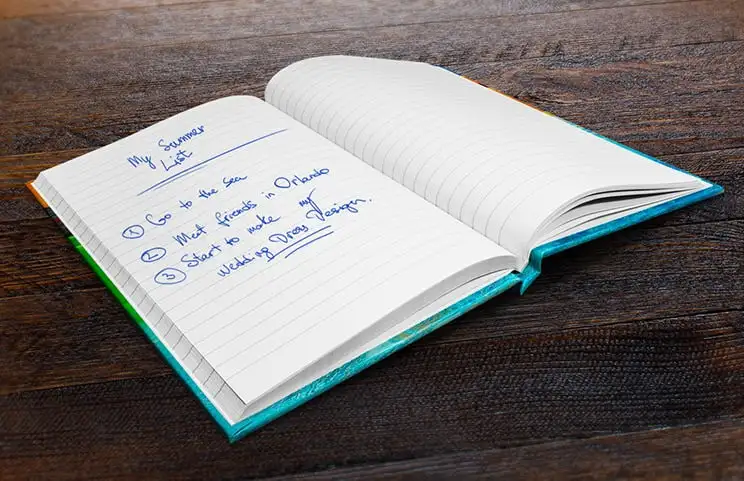 My Summer
List
① Go to the sea
② Meet friends in Orlando
③ Start to make my
Wedding Dress Design.